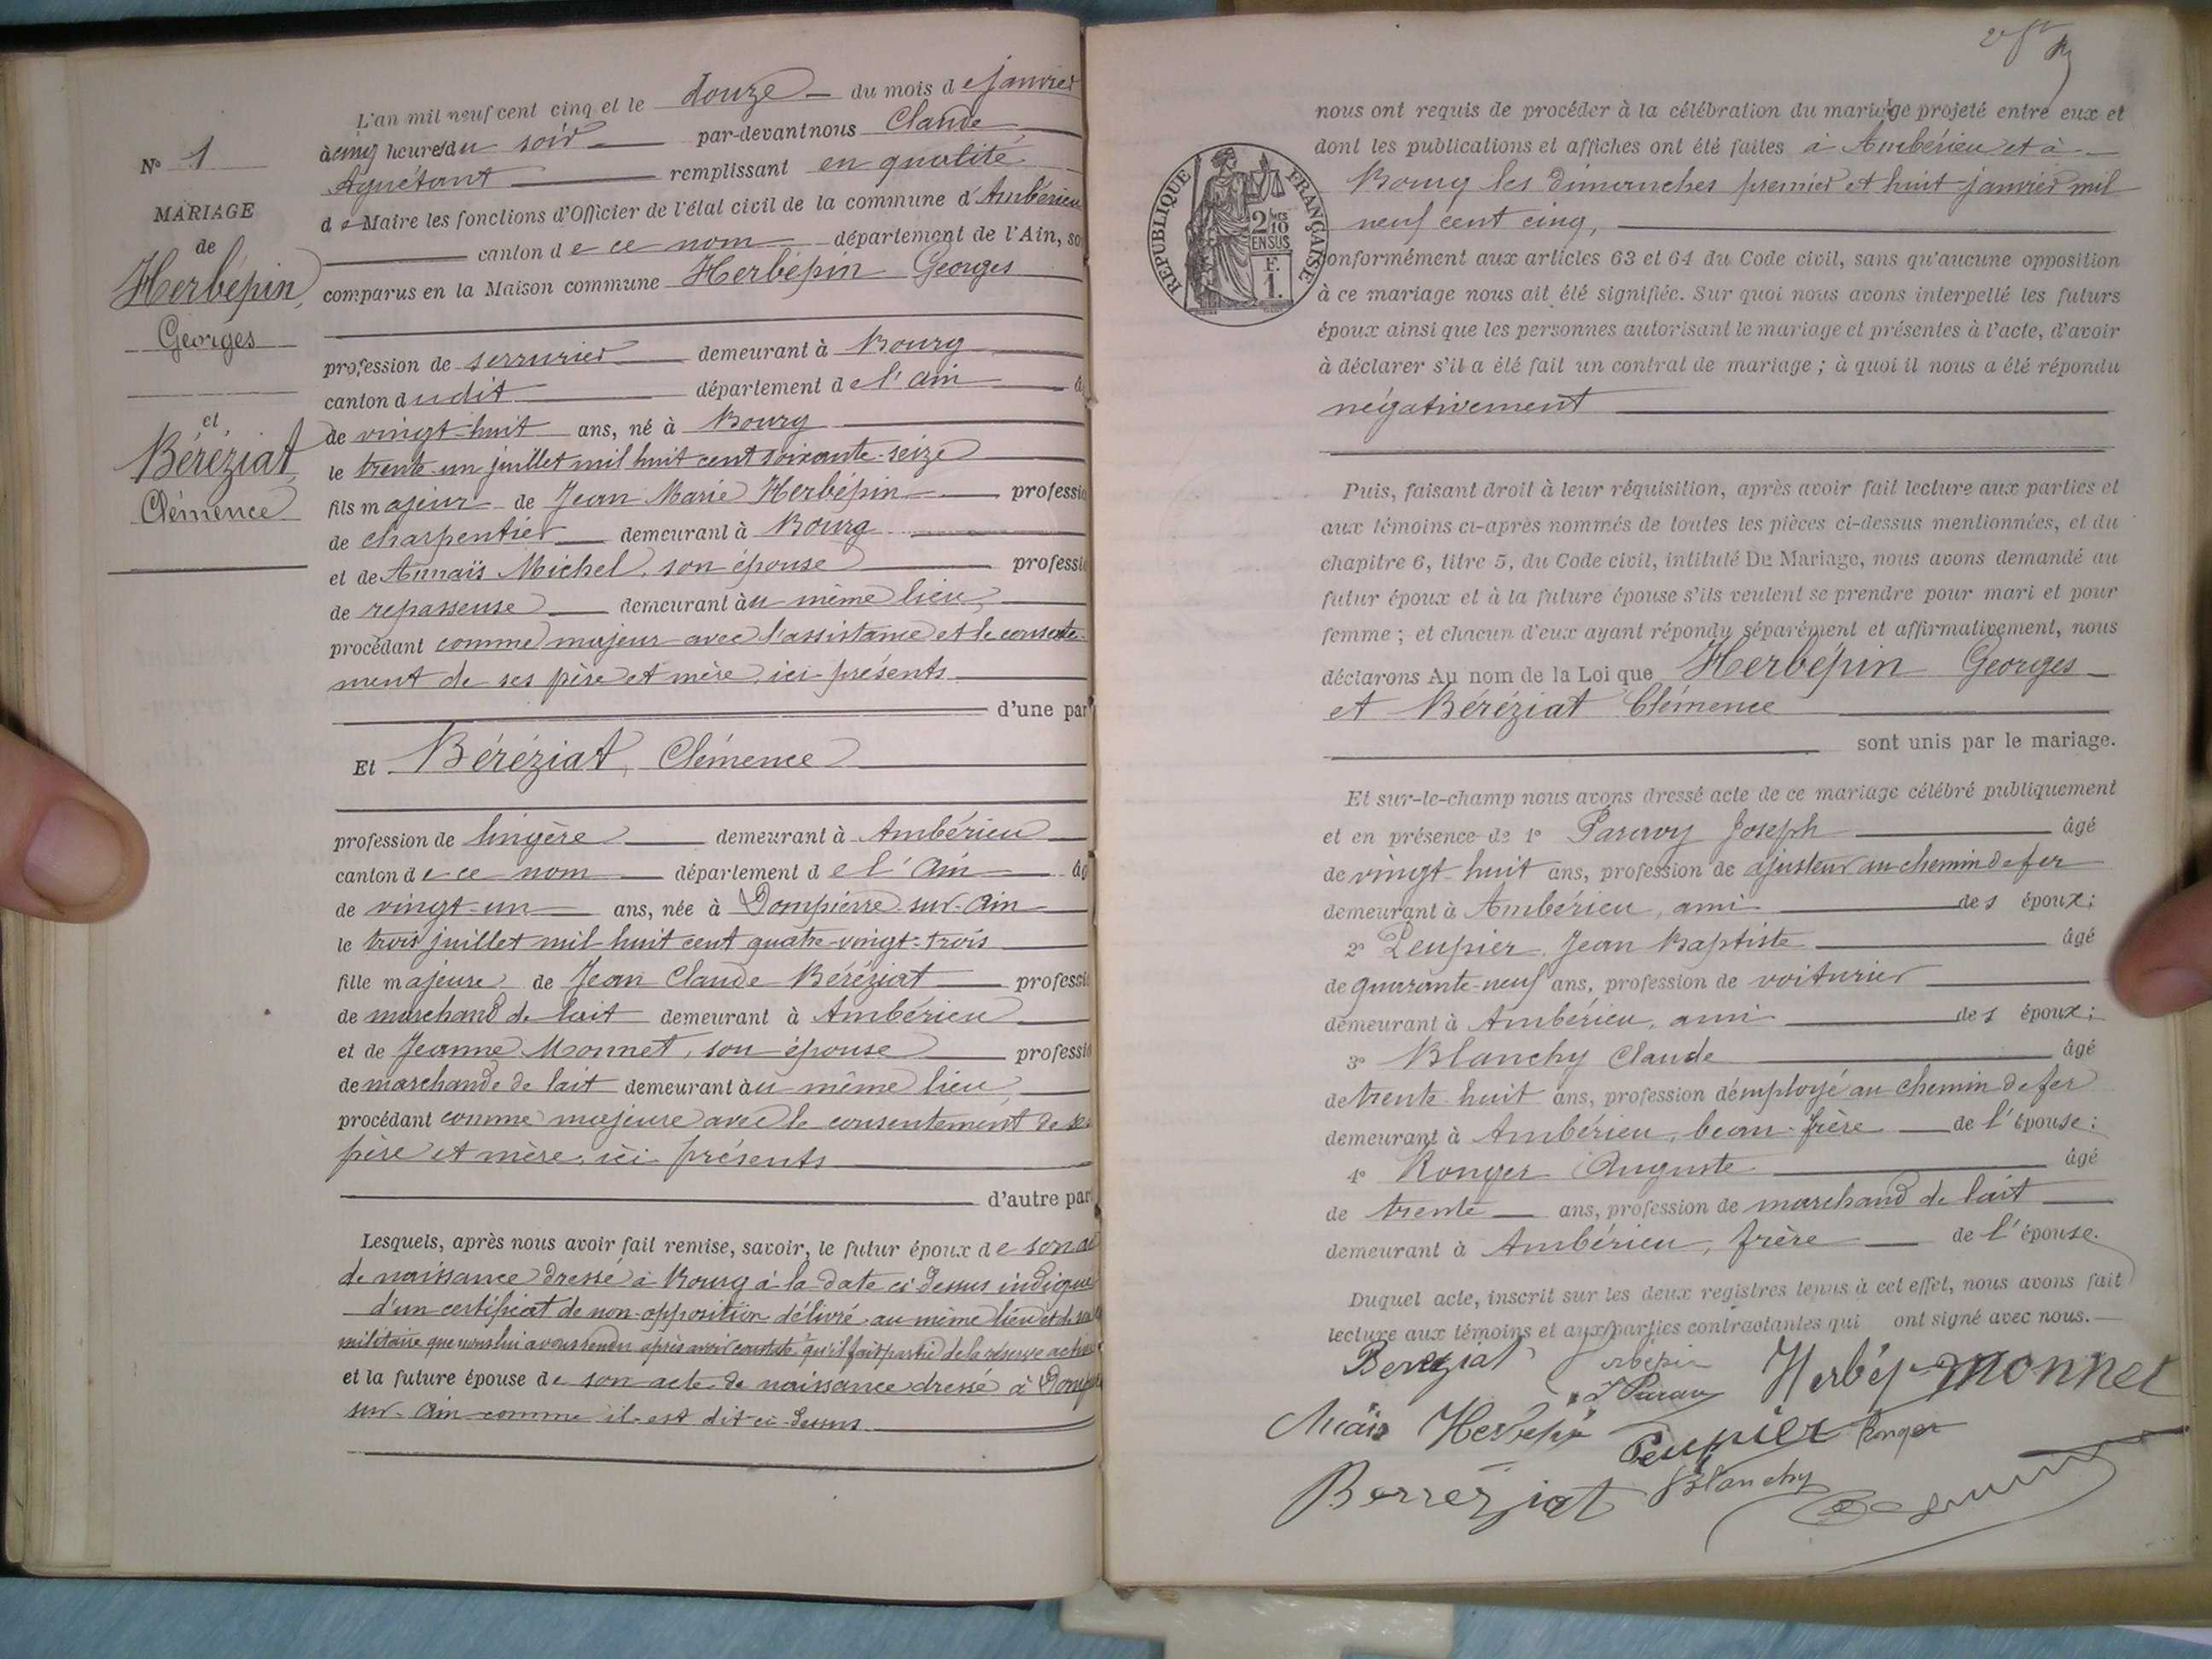 L'an mil neuf cent cinq et le douze du mois de janvier
à cinq heures du soir par-devant nous Claude
Aguétant remplissant en qualité
de Maire les fonctions d'Officier de l'état civil de la commune d'Ambérieu
canton de ce nom département de l'Ain, so
comparus en la Maison commune Herbépin Georges
N° 1
MARIAGE
de
Herbépin,
Georges
et
Béréziat,
Clémence
profession de serrurier demeurant à Bourg
canton dudit département de l'Ain â
de vingt-huit ans, né à Bourg
le trente-un juillet mil huit cent soixante-seize
fils majeur de Jean Marie Herbépin professio
de charpentier demeurant à Bourg
et de Annaïs Michel, son épouse professi
de repasseuse demeurant au même lieu,
procédant comme majeur avec l'assistance et le consente-
ment de ses père et mère, ici présents
d'une par
Et Béréziat, Clémence
profession de lingère demeurant à Ambérieu
canton de ce nom département de l'Ain âg
de vingt-un ans, née à Dompierre-sur-Ain
le trois juillet mil huit cent quatre-vingt-trois
fille majeure de Jean Claude Béréziat professi
de marchand de lait demeurant à Ambérieu
et de Jeanne Monnet, son épouse professio
de marchande de lait demeurant au même lieu,
procédant comme majeure avec le consentement de ses
père et mère, ici présents
d'autre par
Lesquels, après nous avoir fait remise, savoir, le futur époux de son ac
de naissance dressé à Bourg à la date ci-dessus indiquée
d'un certificat de non-opposition délivré au même lieu et de
militaire que nous lui avons rendu après avoir constaté qu'il fait partie de la réserve active
et la future épouse de son acte de naissance dressé à Domp
sur-Ain comme il est dit ci-dessus
nous ont requis de procéder à la célébration du mariage projeté entre eux et
dont les publications et affiches ont été faites à Ambérieu et à
Bourg les dimanches premier et huit janvier mil
neuf cent cinq,
REPUBLIQUE FRANÇAISE
2/10
EN SUS
F.
1.
conformément aux articles 63 et 64 du Code civil, sans qu'aucune opposition
à ce mariage nous ait été signifiée. Sur quoi nous avons interpellé les futurs
époux ainsi que les personnes autorisant le mariage et présentes à l'acte, d'avoir
à déclarer s'il a été fait un contrat de mariage ; à quoi il nous a été répondu
négativement
Puis, faisant droit à leur réquisition, après avoir fait lecture aux parties et
aux témoins ci-après nommés de toutes les pièces ci-dessus mentionnées, et du
chapitre 6, titre 5, du Code civil, intitulé Du Mariage, nous avons demandé au
futur époux et à la future épouse s'ils veulent se prendre pour mari et pour
femme ; et chacun d'eux ayant répondu séparément et affirmativement, nous
déclarons Au nom de la Loi que Herbépin Georges
et Béréziat Clémence
sont unis par le mariage.
Et sur-le-champ nous avons dressé acte de ce mariage célébré publiquement
et en présence de 1° Joseph âgé
de vingt-huit ans, profession de ajusteur au chemin de fer
demeurant à Ambérieu, ami des époux ;
2° Peupier Jean Baptiste âgé
de quarante-neuf ans, profession de voiturier
demeurant à Ambérieu, ami des époux ;
3° Blanchy Claude âgé
de trente-huit ans, profession d'employé au chemin de fer
demeurant à Ambérieu, beau-frère de l'épouse ;
4° Ronger Auguste âgé
de trente ans, profession de marchand de lait
demeurant à Ambérieu, frère de l'épouse.
Duquel acte, inscrit sur les deux registres tenus à cet effet, nous avons fait
lecture aux témoins et aux parties contractantes qui ont signé avec nous.
Bereziat Monnet
Peupier Ronger
Berréziat Blanchy